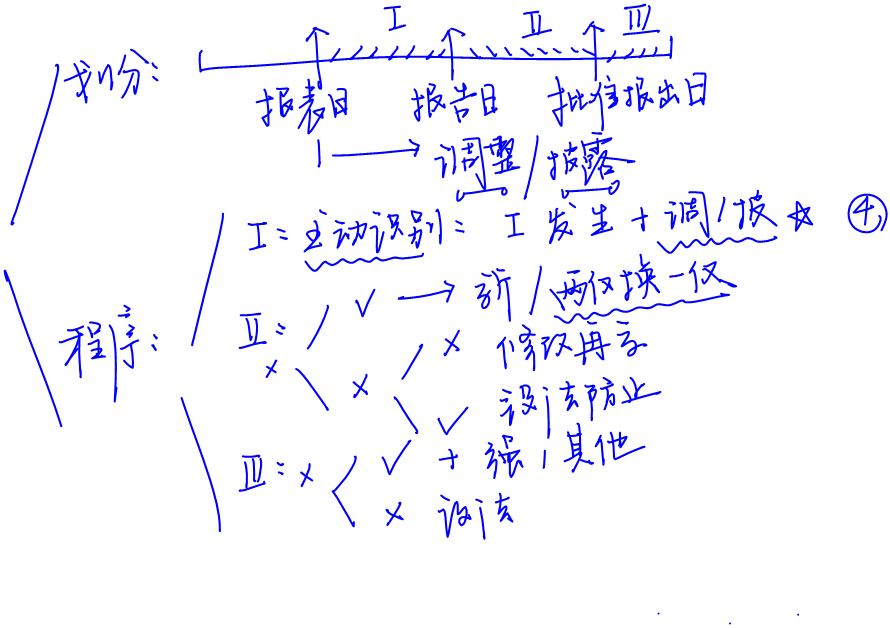 I II III
划分：
报表日 报告日 批准报出日
调整/披露
I：主动识别： I 发生 + 调/披 ☆ ④
II： / ✓ → 新/两仅换一仅
程序：
× × / × 修改再言
✓ 设法防止
III：× ✓ + 强，其他
× 设法